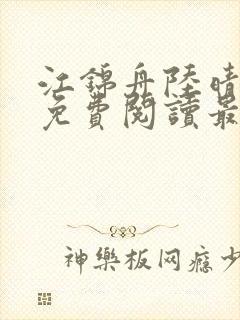 江錦舟陸晴
免費閱讀最
神樂板网瘾少